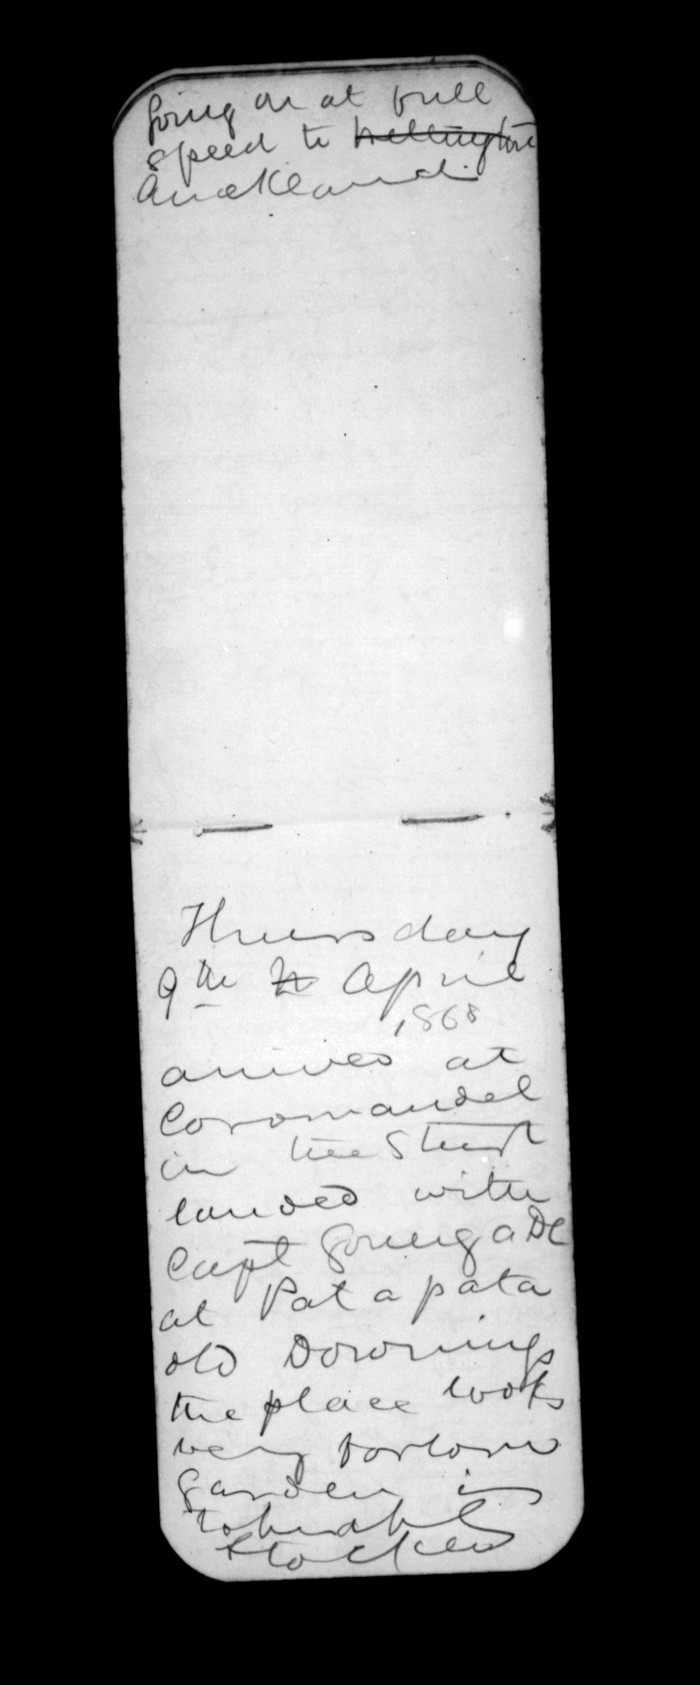 going on at full
speed to Wellington
Auckland
Thursday
9th April
1868
arrived at
Coromandel
in the Sturt
landed with
Capt A DC
at Patapata
old Downings
the place looks
very forlorn
garden is
tolerably
stocked